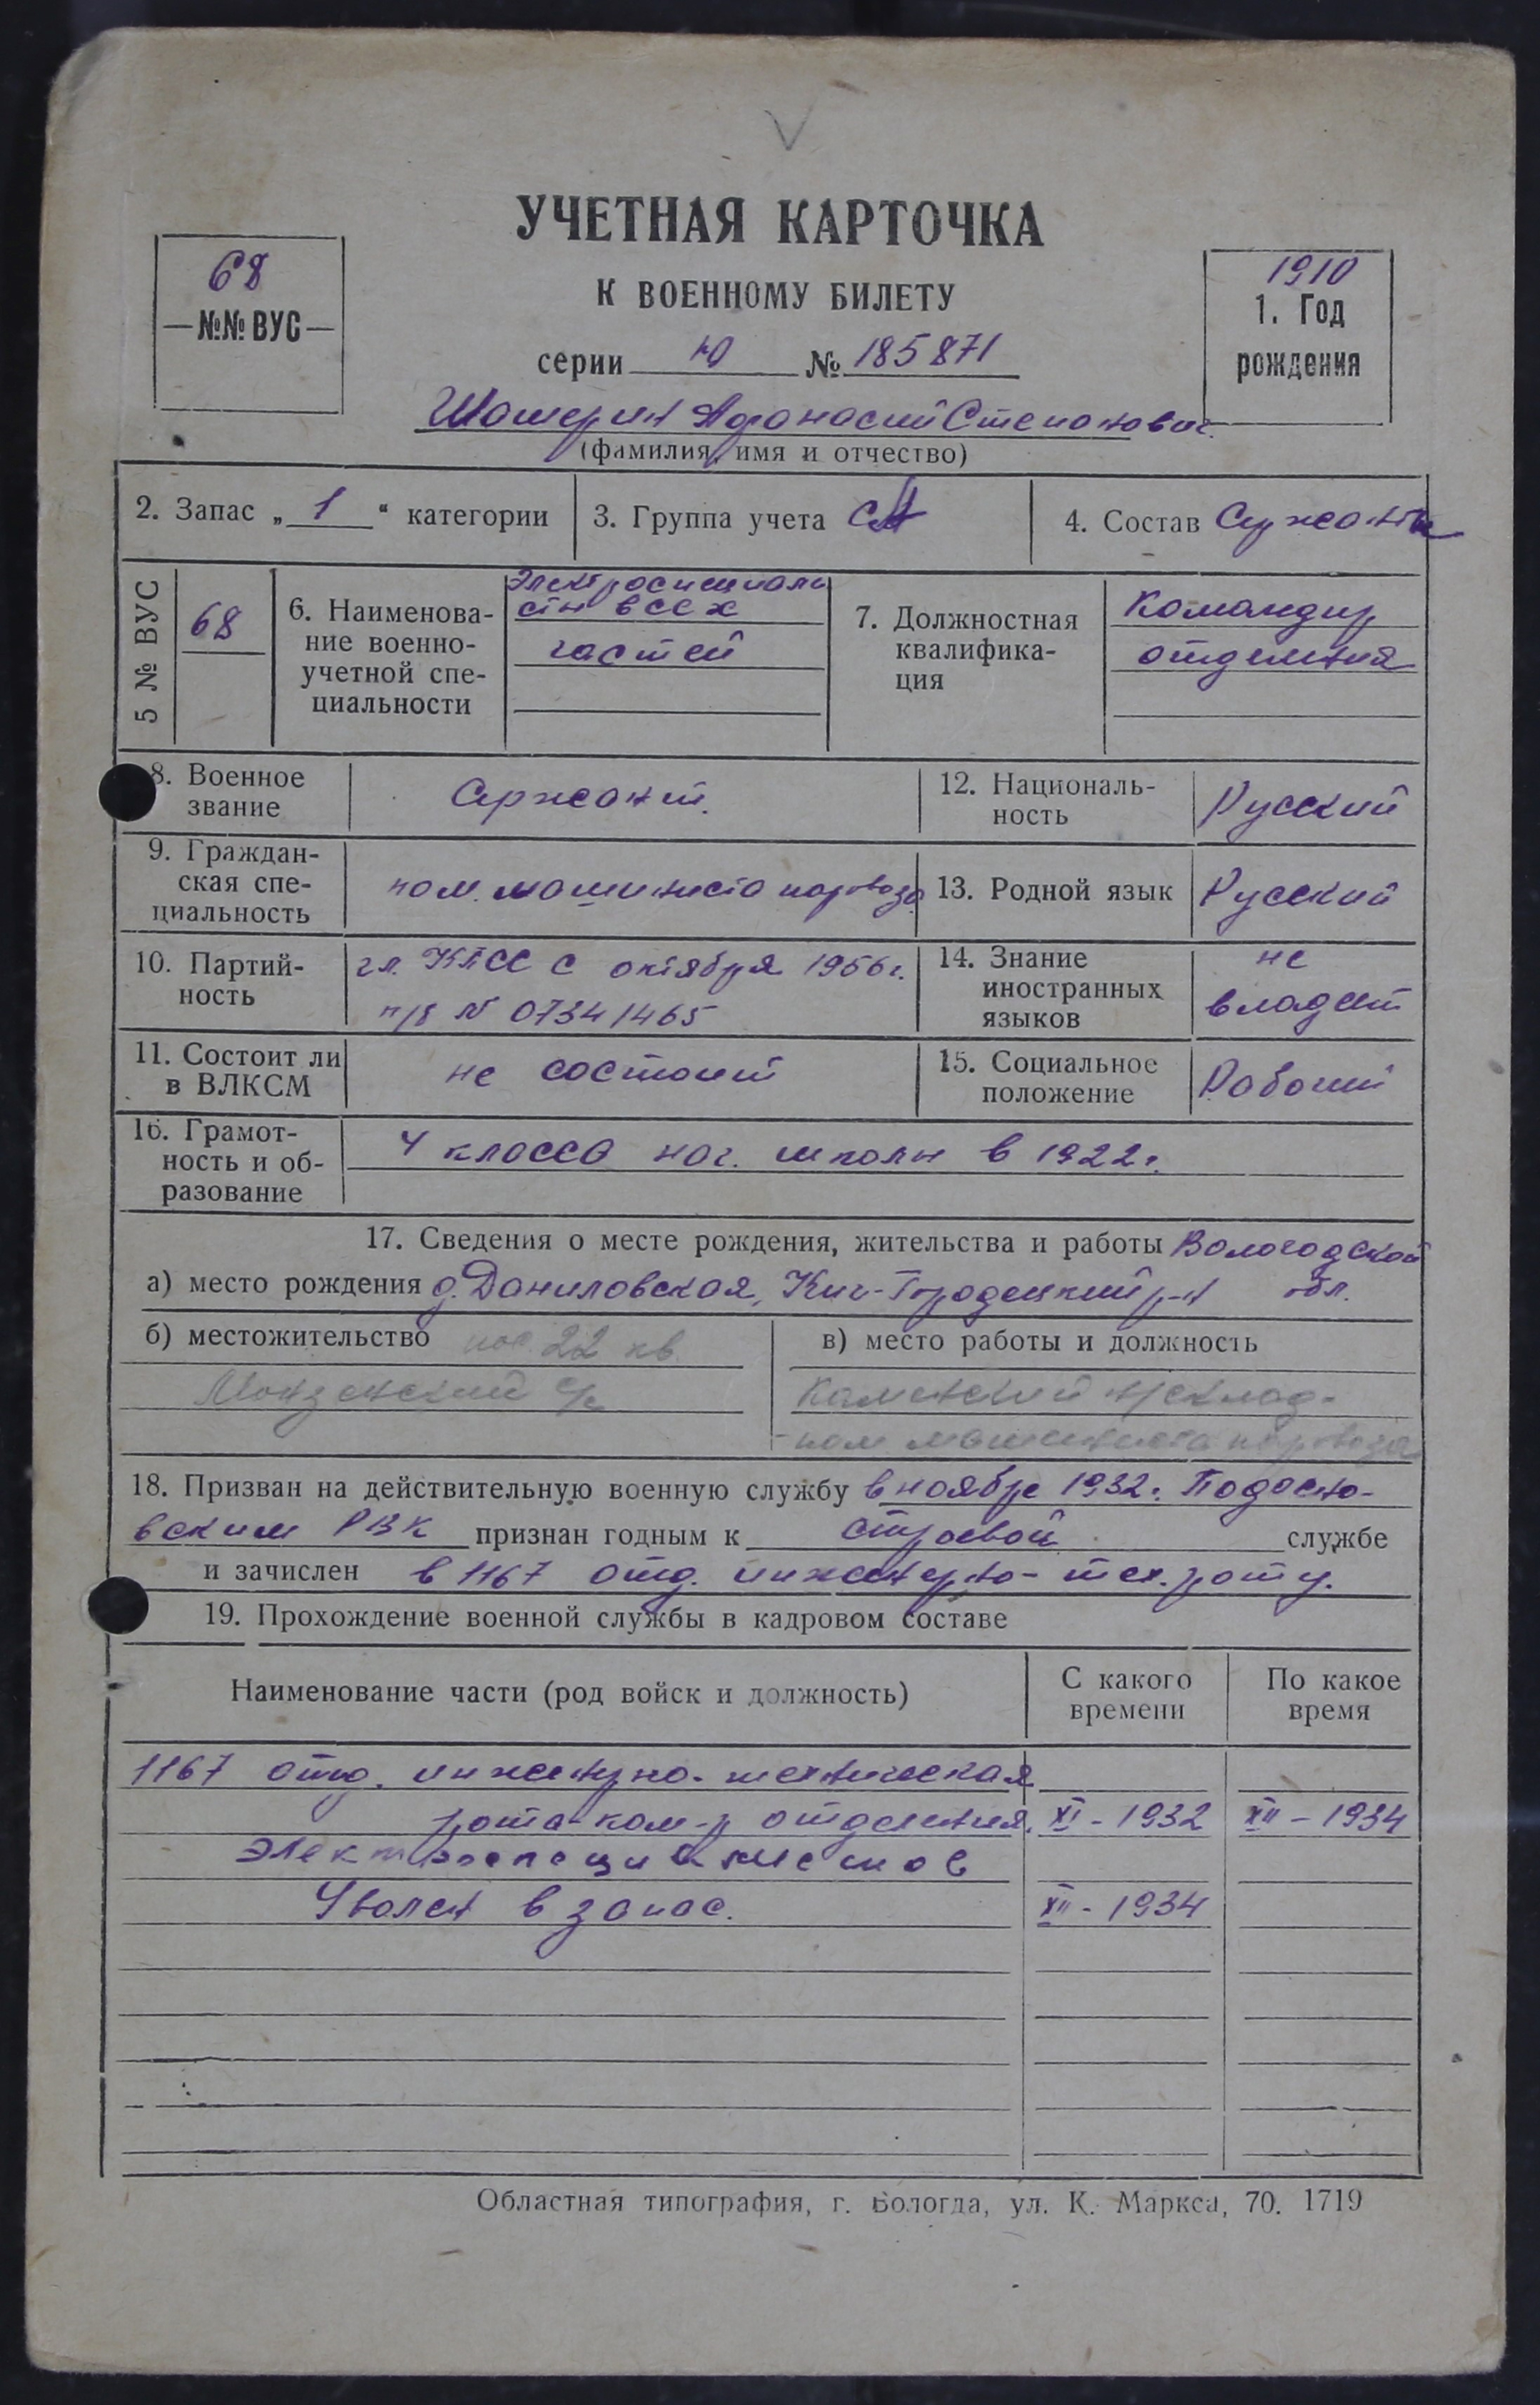 УЧЕТНАЯ КАРТОЧКА
К ВОЕННОМУ БИЛЕТУ
68
№№ ВУС
1910
1. Год
рождения
серии Ю № 185871
Шамерин Афанасий Степанович
(фамилия, имя и отчество)
2. Запас „ 1 “ категории
3. Группа учета СА
4. Состав Сержанты
5 № ВУС
68
6. Наименова-
ние военно-
учетной спе-
циальности
Электроспециали
сты всех
частей
7. Должностная
квалифика-
ция
Командир
отделения
8. Военное
звание
Сержант.
12. Националь-
ность
Русский
9. Граждан-
ская спе-
циальность
пом. машиниста паровоза
13. Родной язык
Русский
10. Партий-
ность
чл. КПСС с октября 1956г.
п/б № 07341465
14. Знание
иностранных
языков
не
владеет
11. Состоит ли
в ВЛКСМ
не состоит
15. Социальное
положение
Рабочий
16. Грамот-
ность и об-
разование
4 класса нач. школы в 1922г.
17. Сведения о месте рождения, жительства и работы Вологодской
а) место рождения д. Даниловская, Кич-Городецкий р-н обл.
б) местожительство пос 22 кв.
Монзенский с/с
в) место работы и должность
Каменский
пом машиниста паровоза
18. Призван на действительную военную службу в ноябре 1932г. Подосино-
вским РВК признан годным к строевой службе
и зачислен в 1167 отд. инженерно-тех. роту.
19. Прохождение военной службы в кадровом составе
Наименование части (род войск и должность)
С какого
времени
По какое
время
1167 отд. инженерно-техническая
рота ком-р отделения. XI - 1932 XII - 1934
электроспециалистов
Уволен в запас. XII - 1934
Областная типография, г. Вологда, ул. К. Маркса, 70. 1719